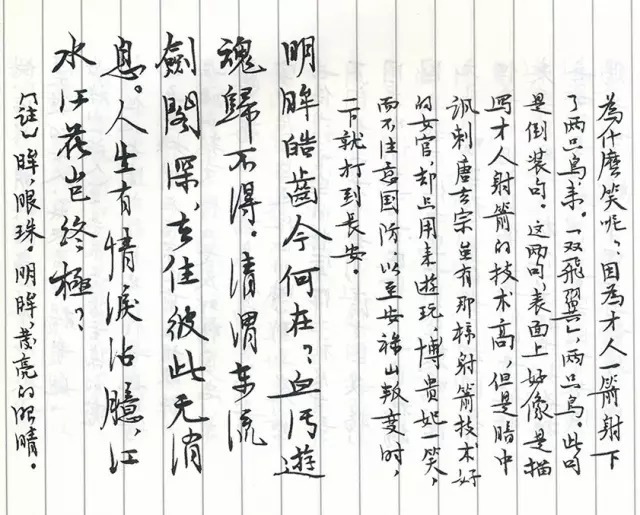 為什麼笑呢，因為才人一箭射下
了两只鸟来。「双飛翼」，两只鸟。此句
是倒装句。这两句，表面上好像是描
写才人射箭的技术高，但是暗中
讽刺唐玄宗虽有那样射箭技术好
的女官，却止用来遊玩，博贵妃一笑，
而不注意国防以至安祿山叛变时，
一下就打到長安。
明眸皓齒今何在？血污遊
魂歸不得。清渭东流
劍閣深，去住彼此无消
息。人生有情淚沾臆，江
水江花岂终極？
〔註〕眸，眼珠。明眸，黑亮的眼睛。